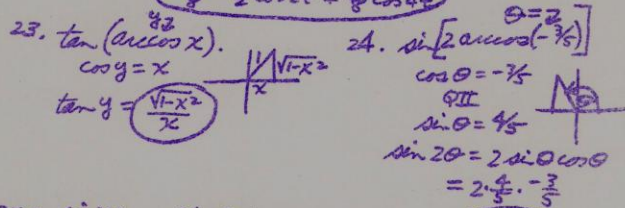 y=
23. tan (arccos x).
cos y = x
1 √1-x²
x
tan y = √1-x²/x
θ=2
24. sin[2 arccos(-3/5)]
cos θ = -3/5
QII
sin θ = 4/5
sin 2θ = 2 sin θ cos θ
= 2·4/5·-3/5